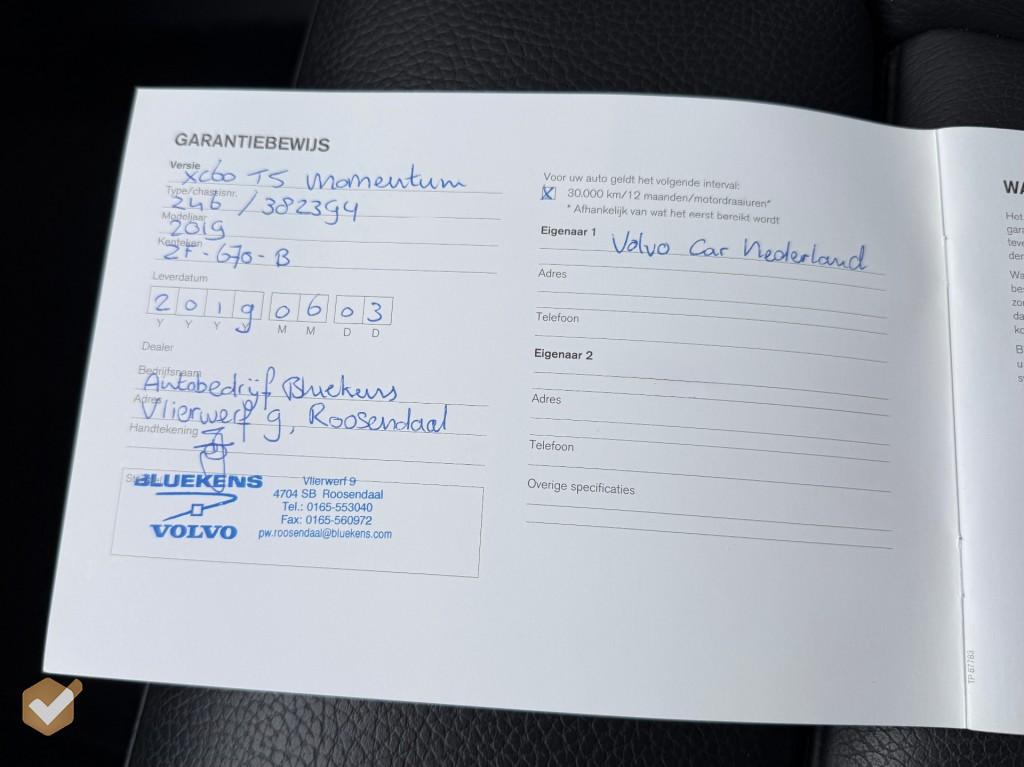 GARANTIEBEWIJS
Versie
XC60 T5 Momentum
Type/chassisnr.
246 / 382394
Modeljaar
2019
Kenteken
ZF-670-B
Leverdatum
2019 06 03
Y Y Y Y M M D D
Dealer
Bedrijfsnaam
Autobedrijf Bluekens
Adres
Vlierwerf 9, Roosendaal
Handtekening
BLUEKENS
VOLVO
Vlierwerf 9
4704 SB Roosendaal
Tel.: 0165-553040
Fax: 0165-560972
pw.roosendaal@bluekens.com
Voor uw auto geldt het volgende interval:
X 30.000 km/12 maanden/motordraaiuren*
* Afhankelijk van wat het eerst bereikt wordt
Eigenaar 1 Volvo Car Nederland
Adres
Telefoon
Eigenaar 2
Adres
Telefoon
Overige specificaties
TP 67783
WA
Het
gara
teve
der
Wa
be
zo
da
ko
B
u